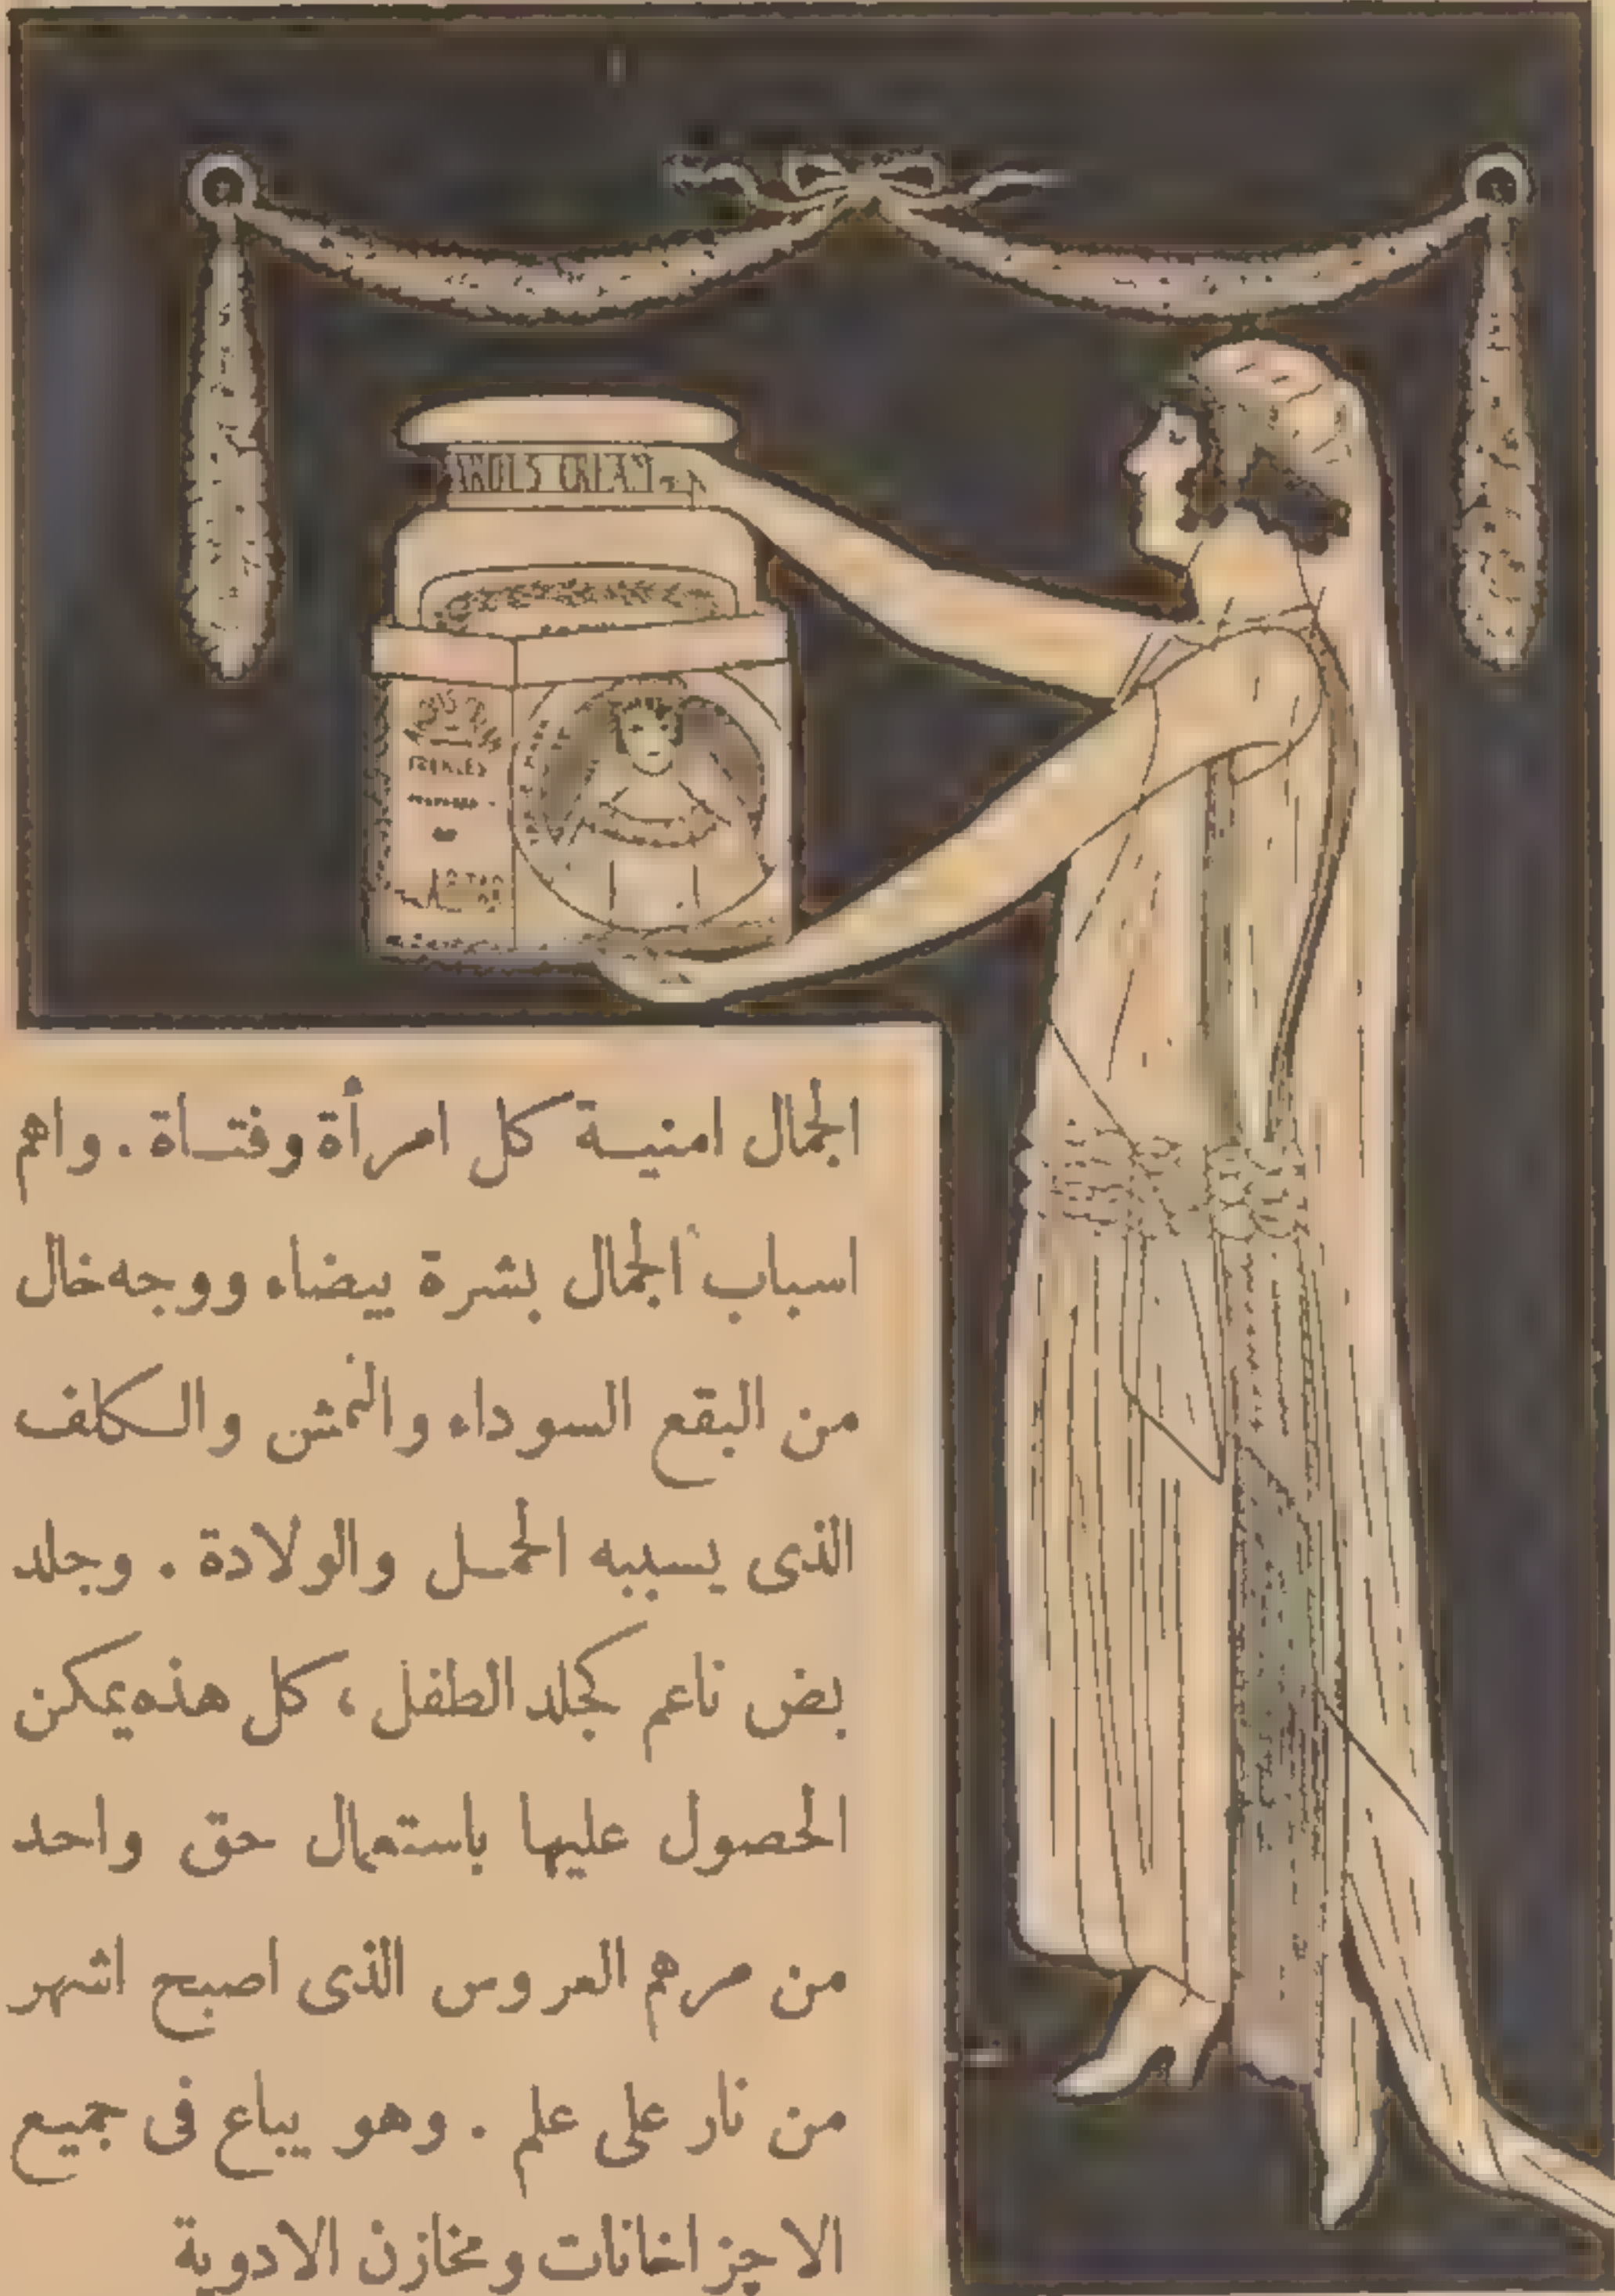 CREAM
الجمال امنية كل امرأة وفتاة . واهم
اسباب الجمال بشرة بيضاء ووجه خال
من البقع السوداء والنمش والكلف
الذى يسببه الحمل والولادة . وجلد
بض ناعم كجلد الطفل ، كل هذه يمكن
الحصول عليها باستعمال حق واحد
من مرهم العروس الذى اصبح اشهر
من نار على علم . وهو يباع فى جميع
الاجزاخانات ومخازن الادوية